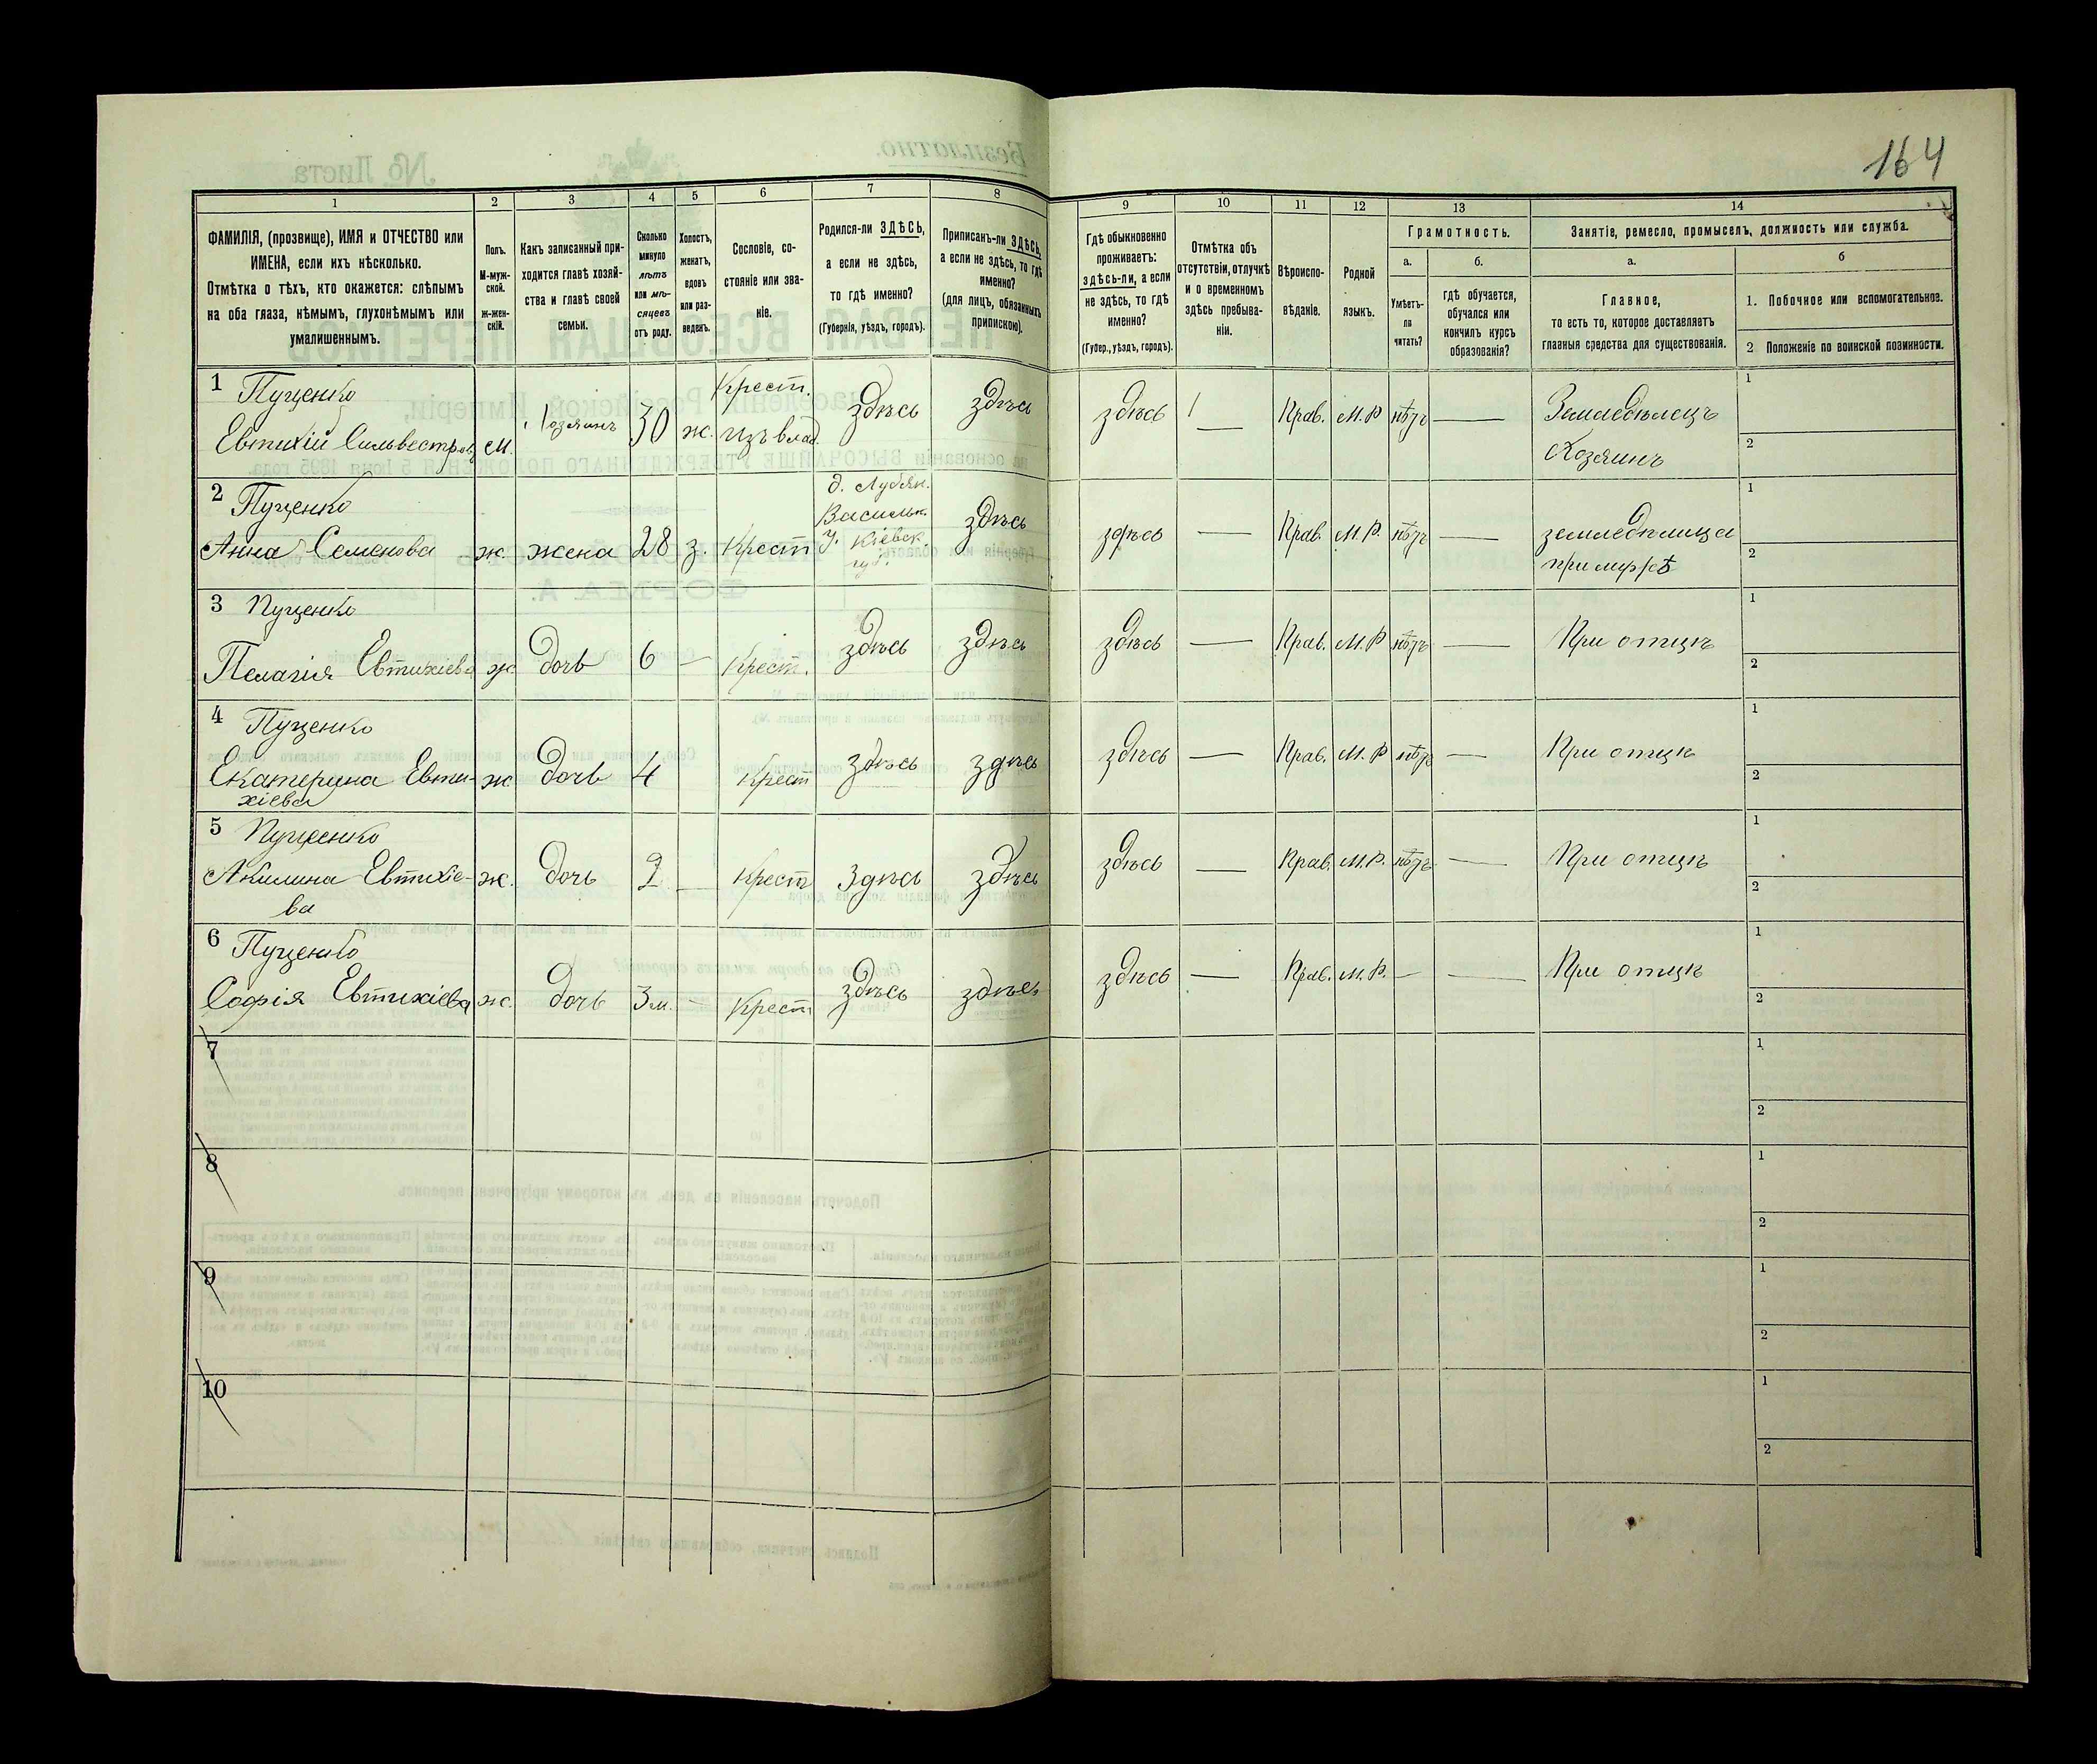 164
1
2
3
4
5
6
7
8
9
10
11
12
13
14
ФАМИЛІЯ, (прозвище), ИМЯ и ОТЧЕСТВО или
ИМЕНА, если ихъ нѣсколько.
Отмѣтка о тѣхъ, кто окажется: слѣпымъ
на оба глаза, нѣмымъ, глухонѣмымъ или
умалишеннымъ.
Полъ.
М-муж-
ской.
Ж-жен-
скій.
Какъ записанный при-
ходится главѣ хозяй-
ства и главѣ своей
семьи.
Сколько
минуло
лѣтъ
или мѣ-
сяцевъ
отъ роду.
Холостъ,
женатъ,
вдовъ
или раз-
веденъ.
Сословіе, со-
стояніе или зва-
ніе.
Родился-ли ЗДѢСЬ,
а если не здѣсь,
то гдѣ именно?
(Губернія, уѣздъ, городъ).
Приписанъ-ли ЗДѢСЬ,
а если не здѣсь, то гдѣ
именно?
(для лицъ, обязанныхъ
припискою).
Гдѣ обыкновенно
проживаетъ:
здѣсь-ли, а если
не здѣсь, то гдѣ
именно?
(Губер., уѣздъ, городъ).
Отмѣтка объ
отсутствіи, отлучкѣ
и о временномъ
здѣсь пребыва-
ніи.
Вѣроиспо-
вѣданіе.
Родной
языкъ.
Грамотность.
а.
Умѣетъ-
ли
читать?
б.
гдѣ обучается,
обучался или
кончилъ курсъ
образованія?
Занятіе, ремесло, промыселъ, должность или служба.
а.
Главное,
то есть то, которое доставляетъ
главныя средства для существованія.
б
1. Побочное или вспомогательное.
2 Положеніе по воинской повинности.
1 Пущенко
Евтихій Сильвестров
м.
Хозяинъ
30
ж.
Крест.
изъ влад.
здѣсь
здѣсь
здѣсь
Прав.
М.Р
нѣтъ
Земледѣлецъ
Хозяинъ
1
2
2 Пущенко
Анна Семенова
ж.
жена
28
з.
Крест
д. Лубян.
Васильк.
у. Кіевск.
губ.
здѣсь
здѣсь
Прав.
М.Р.
нѣтъ
земледѣлица
при мужѣ
1
2
3 Пущенко
Пелагія Евтихіева
ж.
дочь
6
Крест.
здѣсь
здѣсь
здѣсь
Прав.
М.Р
нѣтъ
При отцѣ
1
2
4 Пущенко
Екатерина Евти-
хіева
ж.
дочь
4
Крест
здѣсь
здѣсь
здѣсь
Прав.
М.Р
нѣтъ
При отцѣ
1
2
5 Пущенко
Акилина Евтихіе-
ва
ж.
дочь
2
Крест
здѣсь
здѣсь
здѣсь
Прав.
М.Р.
нѣтъ
При отцѣ
1
2
6 Пущенко
Софія Евтихіева
ж.
дочь
3 м.
Крест
здѣсь
здѣсь
здѣсь
Прав.
М.Р.
При отцѣ
1
2
7
1
2
8
1
2
9
1
2
10
1
2